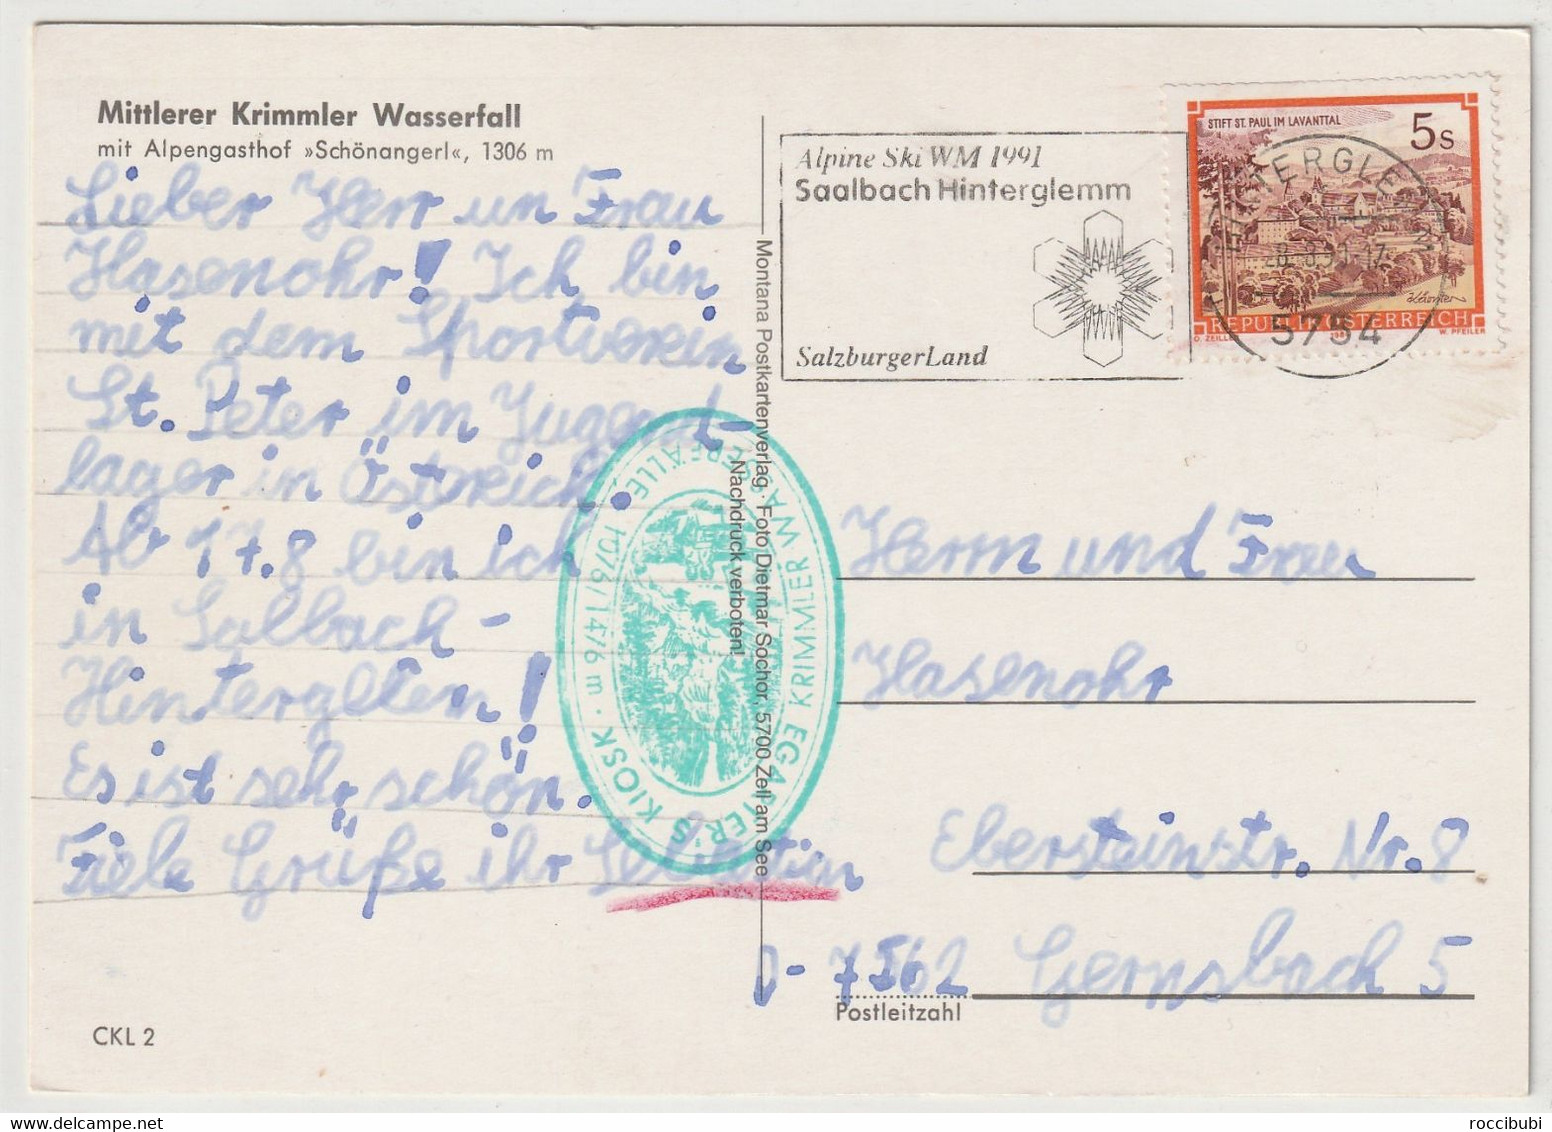 Mittlerer Krimmler Wasserfall
mit Alpengasthof »Schönangerl«, 1306 m
Lieber Herr un Frau
Hasenohr! Ich bin
mit dem Sportverein
St. Peter im Jugend-
lager in Östreich.
Ab 17.8 bin ich
in Salbach-
Hinterglem!
Es ist sehr schön.
Fiele Grüße ihr Sebastian
CKL 2
Montana Postkartenverlag · Foto Dietmar Sochor, 5700 Zell am See
Nachdruck verboten!
EGASTER'S KIOSK · 1076/1476 m · KRIMMLER WASSERFÄLLE
Alpine Ski WM 1991
Saalbach Hinterglemm
SalzburgerLand
STIFT ST. PAUL IM LAVANTTAL
5 S
REPUBLIK ÖSTERREICH
W. PFEILER
HINTERGLEMM
5754
Herrn und Frau
Hasenohr
Ebersteinstr. Nr. 8
D-7562 Gernsbach 5
Postleitzahl
roccibubi